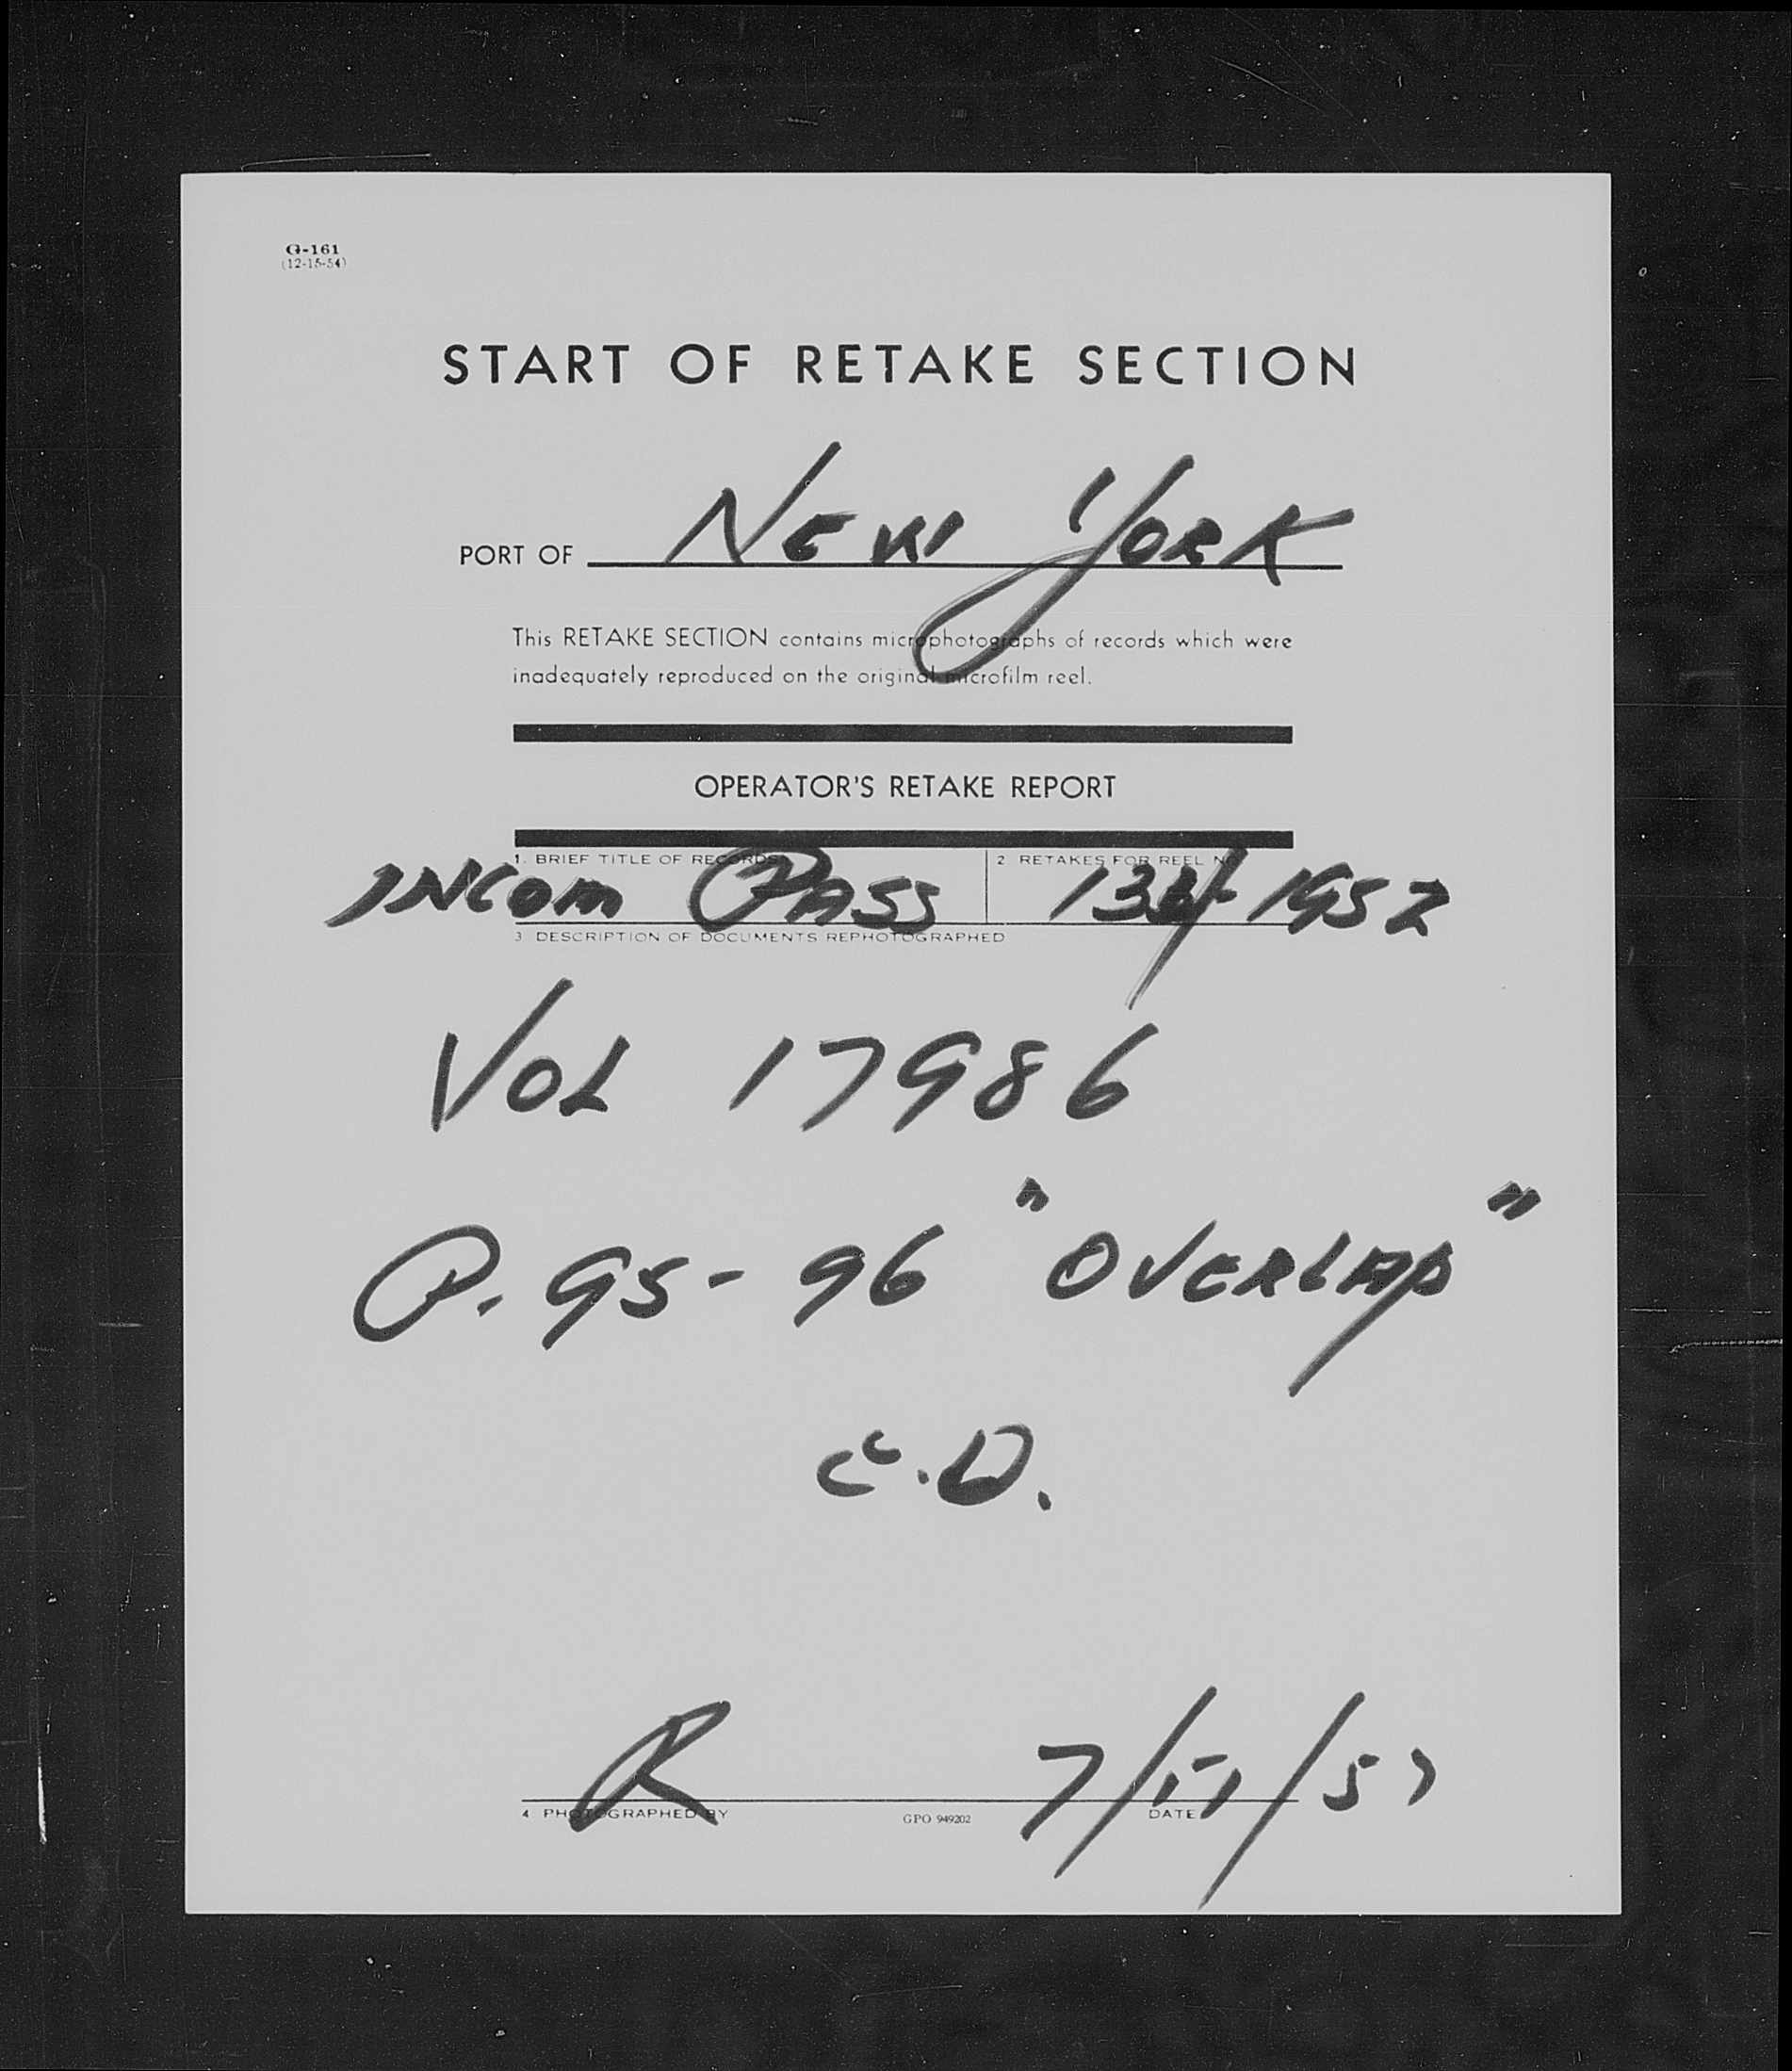 G-161
(12-15-54)
START OF RETAKE SECTION
PORT OF NEW YORK
This RETAKE SECTION contains microphotographs of records which were
inadequately reproduced on the original microfilm reel.
OPERATOR'S RETAKE REPORT
1. BRIEF TITLE OF RECORDS 2 RETAKES FOR REEL NO.
INCOM PASS 1952
3. DESCRIPTION OF DOCUMENTS REPHOTOGRAPHED
VOL 17986
P. 95-96 "OVERLAP"
C.D.
R 7/ /57
4. PHOTOGRAPHED BY GPO 949202 DATE